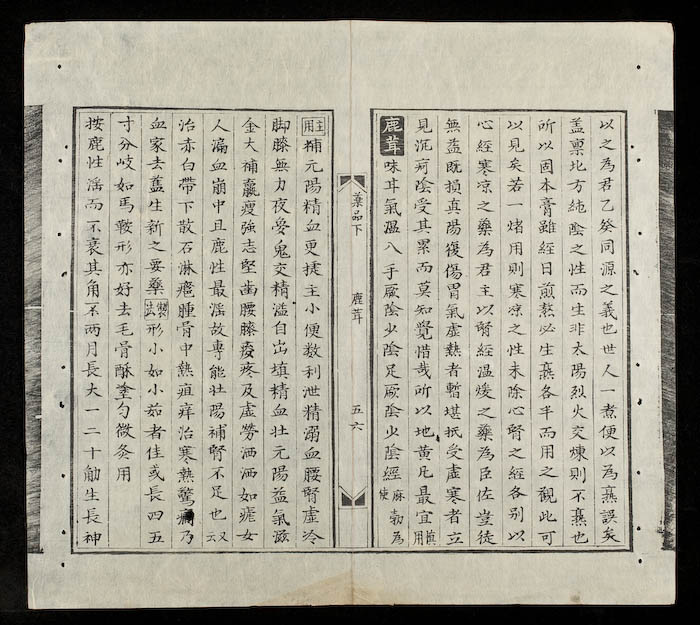 以之為君乙癸同源之義也世人一煮便以為熟誤矣
盖稟地方純陰之性而生非太陽烈火交煉則不熟也
所以固本膏雖經日煎熬必生熟各半而用之觀此可
以見矣若一緒用則寒凉之性未除心腎之經各别以
心經寒凉之藥為君主以腎經温煖之藥為臣佐豈徒
無益既損真陽復傷胃氣虛熱者暫堪抵受虛寒者立
見沉疴陰受其累而莫知覺惜哉所以地黄凡最宜慎用
鹿茸味甘氣温入手厥陰少陰足厥陰少陰經麻勃為使
藥品下 鹿茸 五六
主用補元陽精血更捷主小便数利泄精溺血腰腎虛冷
脚膝無力夜夢鬼交精溢自出填精血壮元陽益氣滋
金大補羸瘦強志堅齒腰膝痠疼及虛勞洒洒如瘧女
人漏血崩中且鹿性最淫故專能壮陽補腎不足也又云
治赤白帶下散石淋癰腫骨中熱疽痒治寒熱驚癇乃
血家去舊生新之要藥製法形小如小茄者佳或長四五
寸分岐如馬鞍形亦好去毛骨酥塗勻微灸用
按鹿性淫而不衰其角不两月長大一二十觔生長神